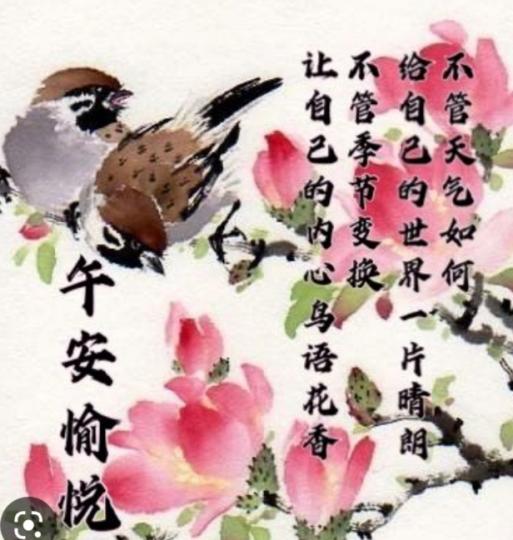 不管天气如何
给自己的世界一片晴朗
不管季节变换
让自己的内心鸟语花香
午安愉悦